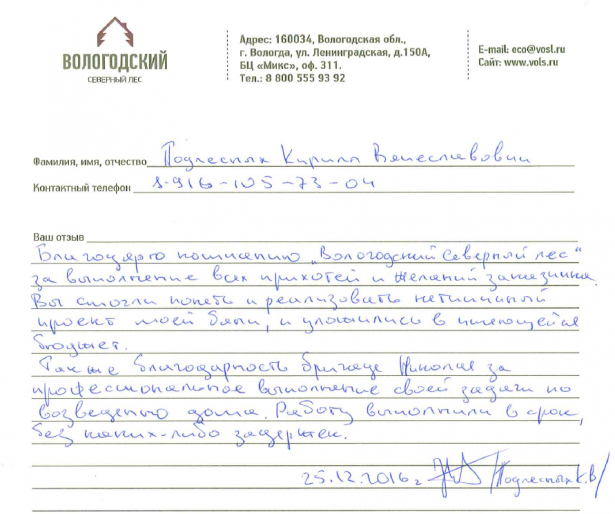 ВОЛОГОДСКИЙ
СЕВЕРНЫЙ ЛЕС
Адрес: 160034, Вологодская обл.,
г. Вологда, ул. Ленинградская, д.150А,
БЦ «Микс», оф. 311.
Тел.: 8 800 555 93 92
E-mail: eco@vosl.ru
Сайт: www.vols.ru
Фамилия, имя, отчество Подлесных Кирилл Вячеславович
Контактный телефон 8-916-105-73-04
Ваш отзыв
Благодарю компанию „Вологодский Северный лес“
за выполнение всех прихотей и желаний заказчика.
Вы смогли понять и реализовать нетипичный
проект моей бани, и уложились в имеющейся
бюджет.
Также благодарность бригаде Николая за
профессиональное выполнение своей задачи по
возведению дома. Работу выполнили в срок,
без каких-либо задержек.
25.12.2016г /Подлесных К.В/